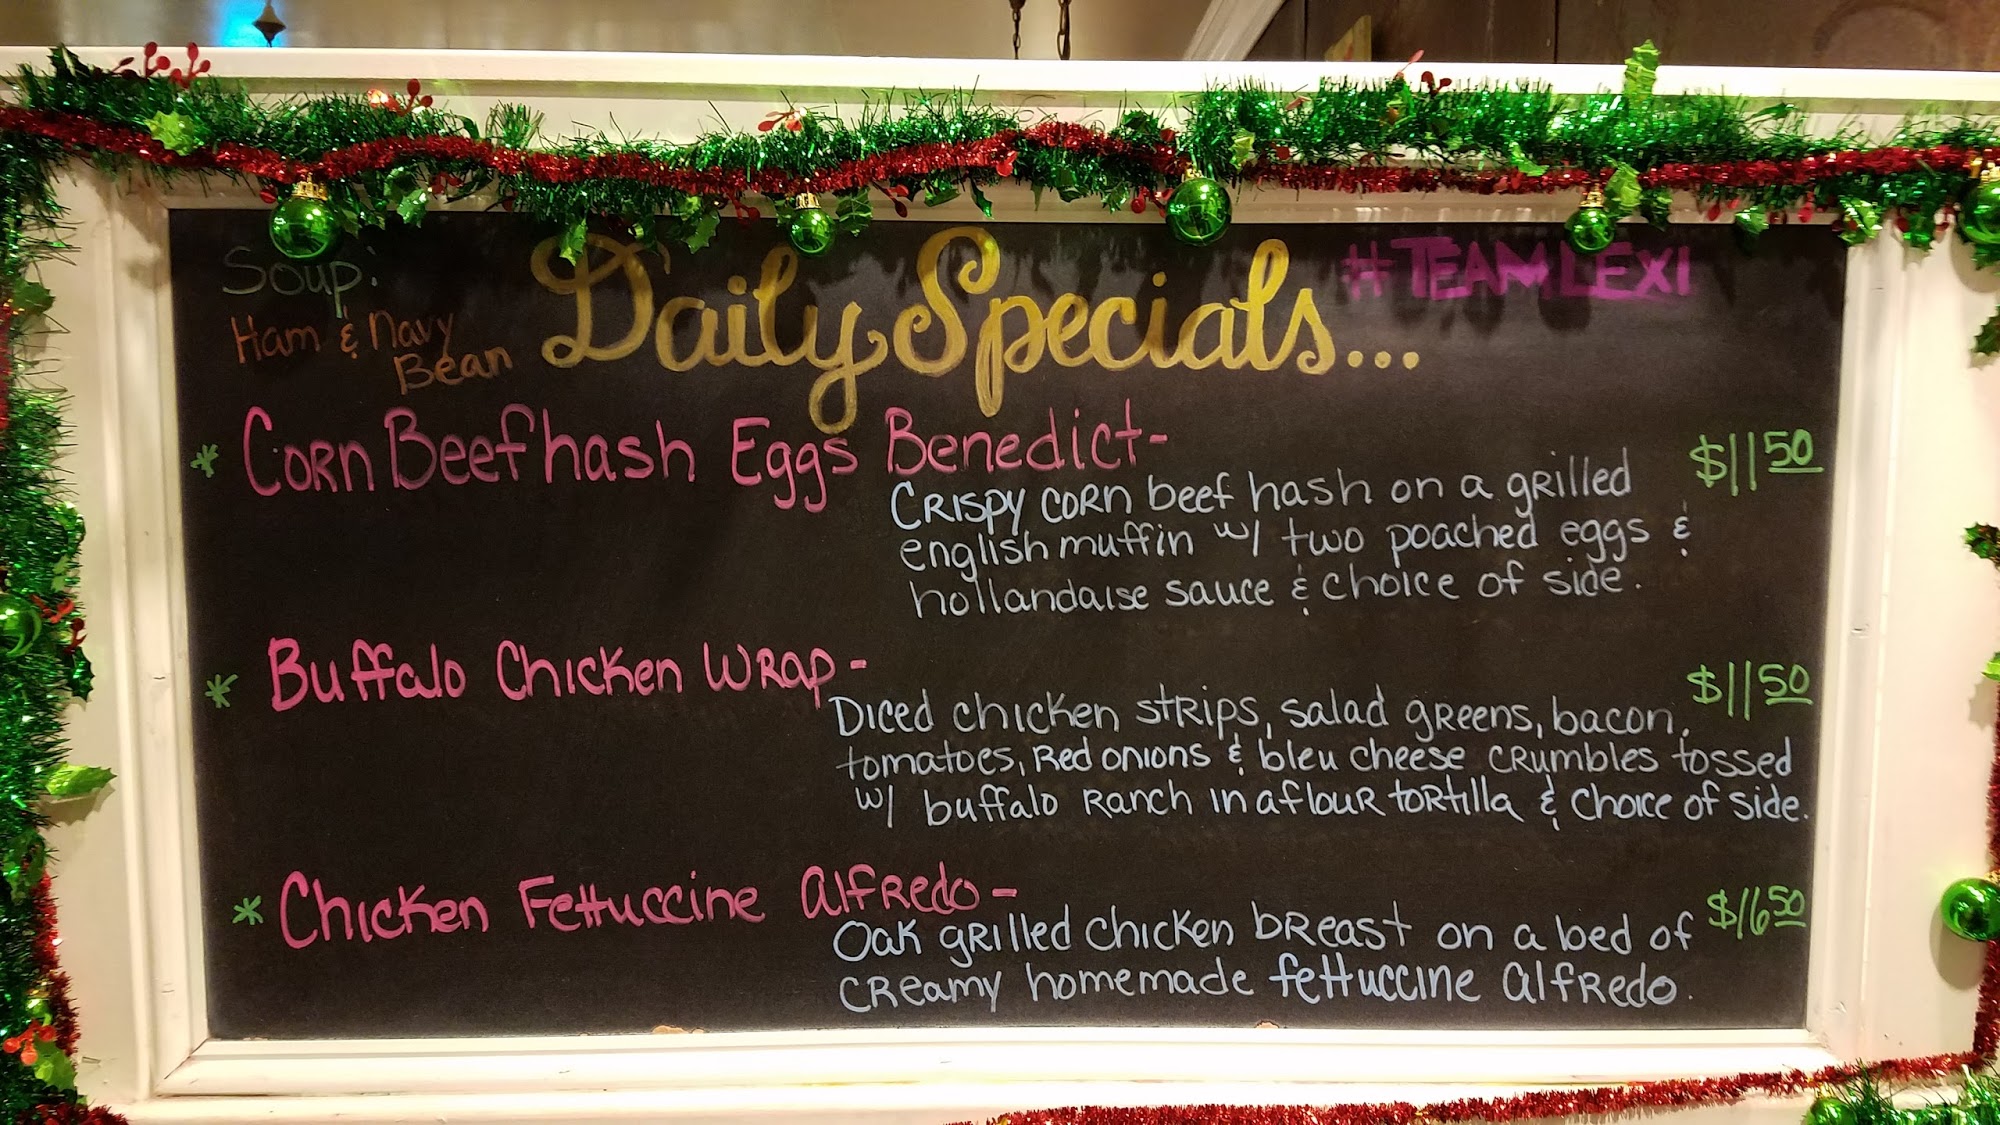 Soup:
Ham & Navy
Bean
Daily Specials...
#TEAMLEXI
* Corn Beef hash Eggs Benedict-
$11 50
Crispy corn beef hash on a grilled
english muffin w/ two poached eggs &
hollandaise sauce & choice of side.
* Buffalo Chicken Wrap-
$11 50
Diced chicken strips, salad greens, bacon,
tomatoes, Red onions & bleu cheese crumbles tossed
w/ buffalo Ranch in a flour tortilla & choice of side.
* Chicken Fettuccine Alfredo-
$16 50
Oak grilled chicken breast on a bed of
creamy homemade fettuccine alfredo.